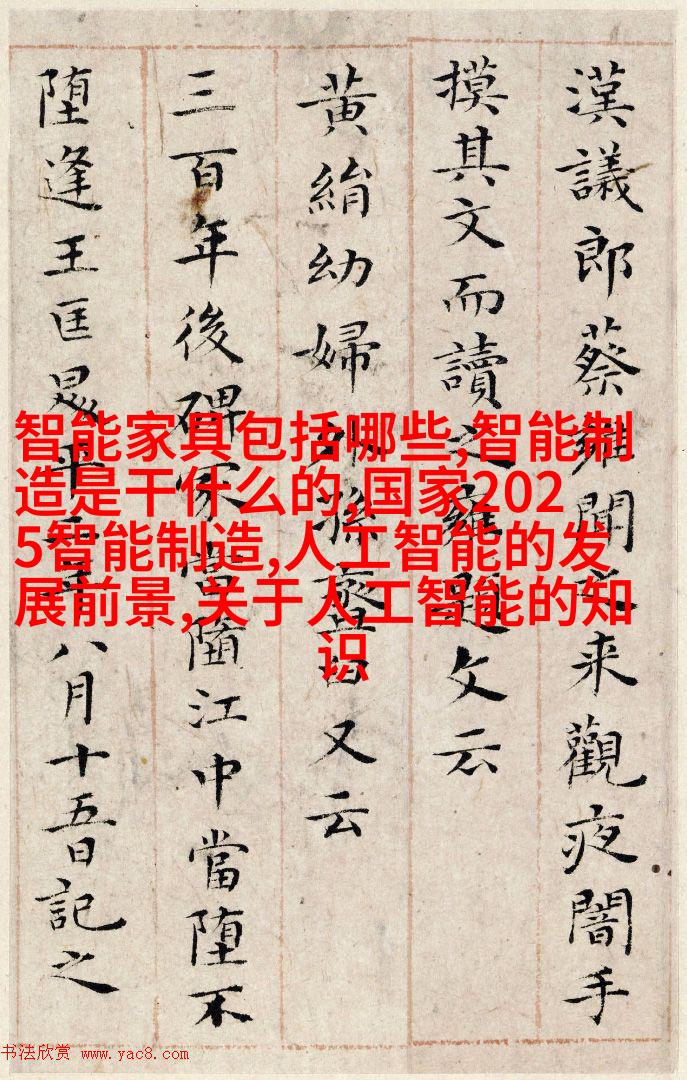 漢議郎蔡雝聞之来觀夜闇手
摸其文而讀之雍題文云
黄絹幼婦外孫齏臼又云
三百年後碑冢當墮江中當墮不
墮逢王匡昇平二年八月十五日記之
智能家具包括哪些,智能制
造是干什么的,国家202
5智能制造,人工智能的发
展前景,关于人工智能的知
识
书法欣赏 www.yac8.com